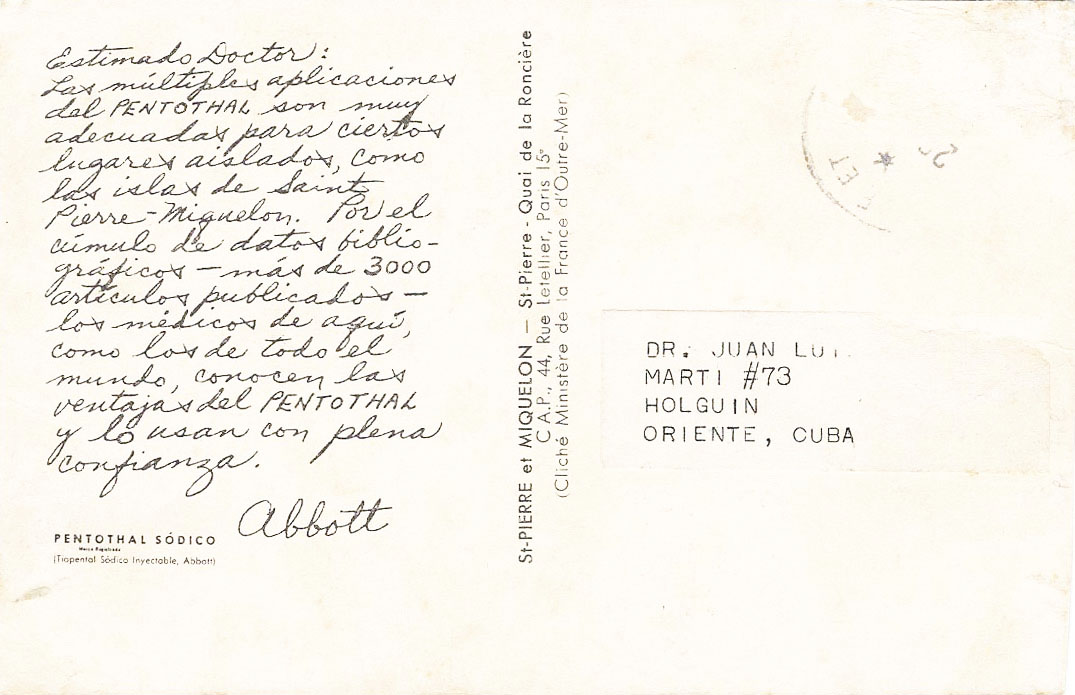 Estimado Doctor:
Las múltiples aplicaciones
del PENTOTHAL son muy
adecuadas para ciertos
lugares aislados, como
las islas de Saint
Pierre-Miquelon. Por el
cúmulo de datos biblio-
gráficos — más de 3000
artículos publicados —
los médicos de aquí,
como los de todo el
mundo, conocen las
ventajas del PENTOTHAL
y lo usan con plena
confianza.
Abbott
PENTOTHAL SÓDICO
Marca Registrada
(Tiopental Sódico Inyectable, Abbott)
St-PIERRE et MIQUELON — St-Pierre - Quai de la Roncière
C.A.P., 44, Rue Letellier, Paris 15e
(Cliché Ministère de la France d'Outre-Mer)
DR. JUAN
MARTI #73
HOLGUIN
ORIENTE, CUBA